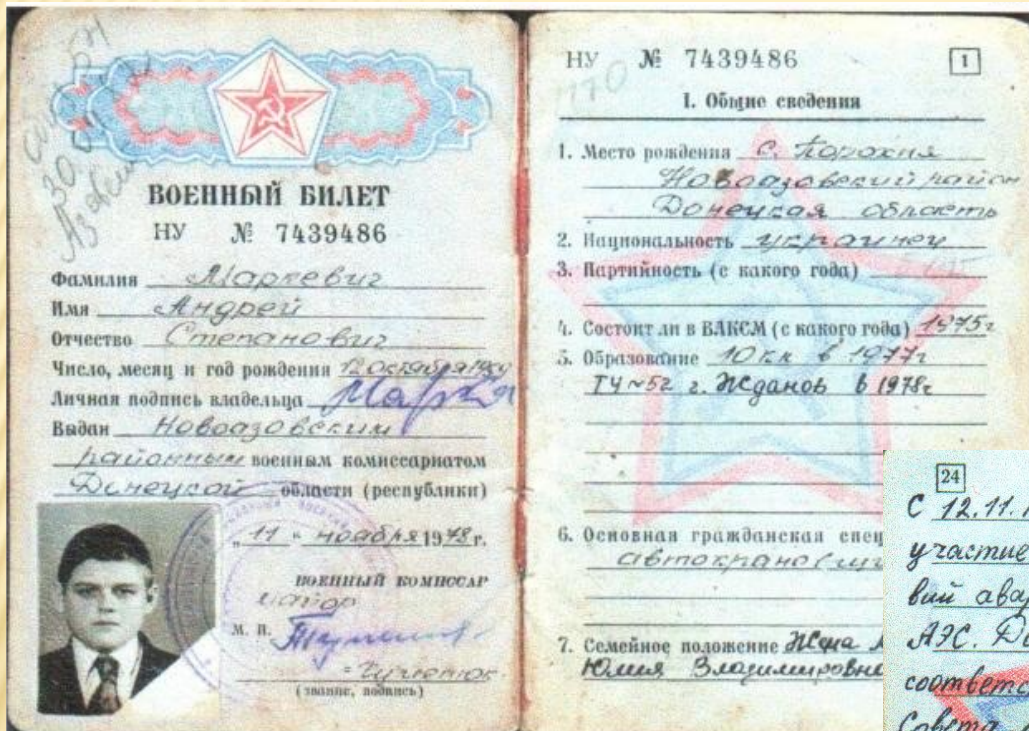 ВОЕННЫЙ БИЛЕТ
НУ № 7439486
Фамилия Маркевич
Имя Андрей
Отчество Степанович
Число, месяц и год рождения 12 октября 1959
Личная подпись владельца
Выдан Новоазовским
районным военным комиссариатом
Донецкой области (республики)
„ 11 “ ноября 1978 г.
ВОЕННЫЙ КОМИССАР
майор
М. П.
(звание, подпись)
НУ № 7439486
1
I. Общие сведения
1. Место рождения с. Порохня
Новоазовский район
Донецкая область
2. Национальность украинец
3. Партийность (с какого года)
4. Состоит ли в ВЛКСМ (с какого года) 1975г
5. Образование 10 кл в 1977г
ТУ №52 г. Жданов в 1978г
6. Основная гражданская спец
7. Семейное положение Жена
Юлия Владимировна
24
С 12.11.
участие
вий авар
АЭС.
соответс
Совета